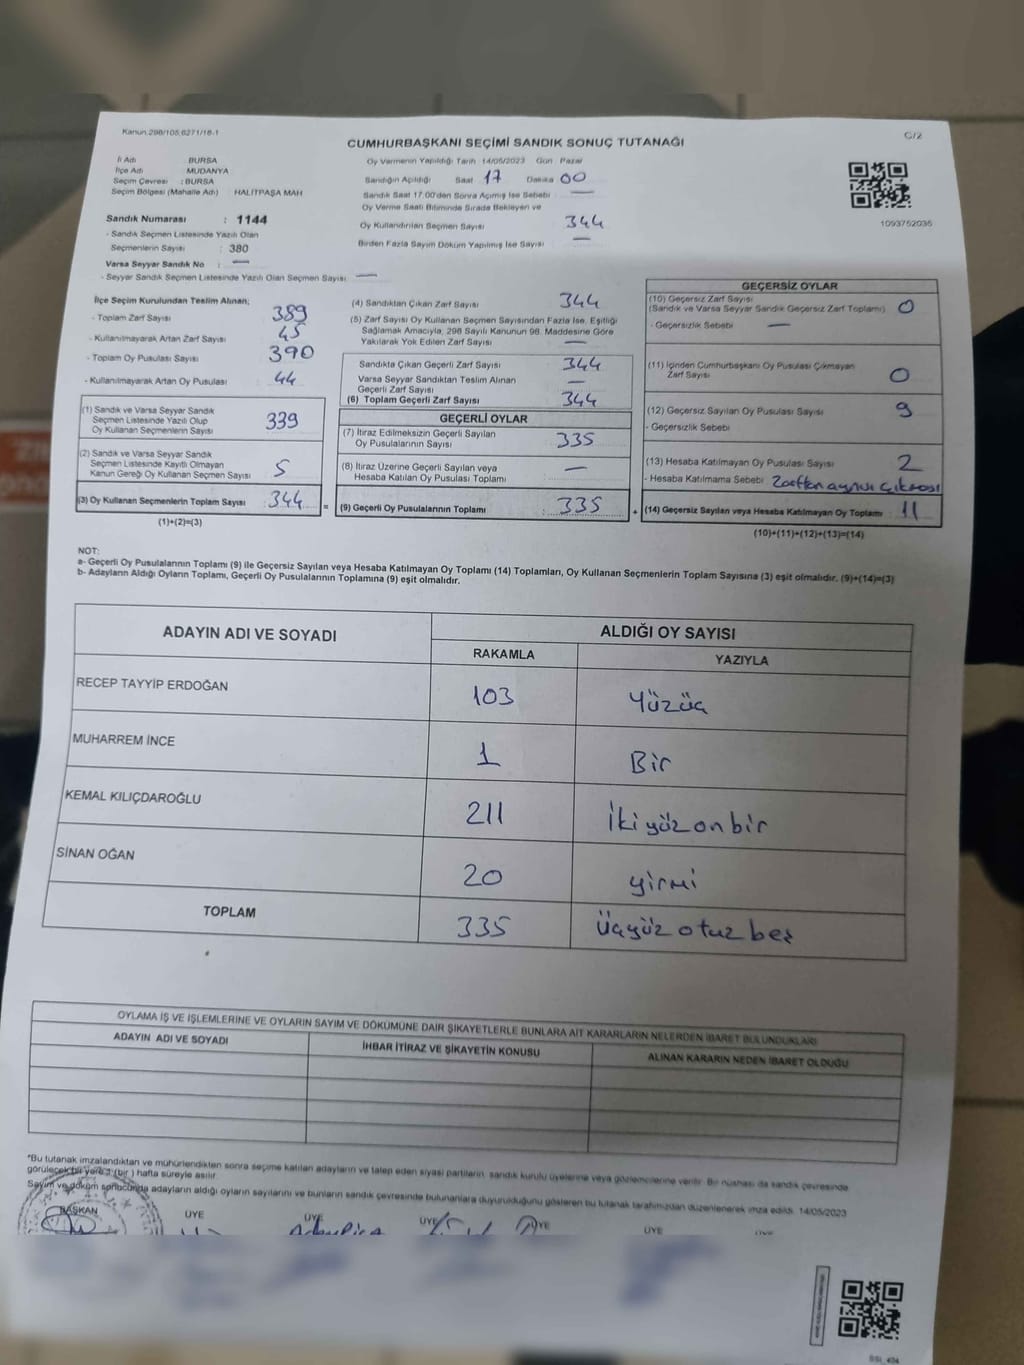 Kanun.298/105,6271/18-1
C/2
CUMHURBAŞKANI SEÇİMİ SANDIK SONUÇ TUTANAĞI
İl Adı BURSA
İlçe Adı MUDANYA
Seçim Çevresi : BURSA
Seçim Bölgesi (Mahalle Adı) : HALİTPAŞA MAH
Sandık Numarası : 1144
- Sandık Seçmen Listesinde Yazılı Olan
Seçmenlerin Sayısı : 380
Varsa Seyyar Sandık No : —
- Seyyar Sandık Seçmen Listesinde Yazılı Olan Seçmen Sayısı: —
Oy Vermenin Yapıldığı Tarih 14/05/2023 Gün : Pazar
Sandığın Açıldığı Saat 17 Dakika 00
Sandık Saat 17:00'den Sonra Açımış İse Sebebi : —
Oy Verme Saati Bitiminde Sırada Bekleyen ve
Oy Kullandırılan Seçmen Sayısı 344
Birden Fazla Sayım Döküm Yapılmış İse Sayısı —
1093752035
İlçe Seçim Kurulundan Teslim Alınan;
- Toplam Zarf Sayısı 389
- Kullanılmayarak Artan Zarf Sayısı 45
- Toplam Oy Pusulası Sayısı 390
- Kullanılmayarak Artan Oy Pusulası 44
(1) Sandık ve Varsa Seyyar Sandık
Seçmen Listesinde Yazılı Olup
Oy Kullanan Seçmenlerin Sayısı 339
(2) Sandık ve Varsa Seyyar Sandık
Seçmen Listesinde Kayıtlı Olmayan
Kanun Gereği Oy Kullanan Seçmen Sayısı 5
(3) Oy Kullanan Seçmenlerin Toplam Sayısı 344
(1)+(2)=(3)
(4) Sandıktan Çıkan Zarf Sayısı 344
(5) Zarf Sayısı Oy Kullanan Seçmen Sayısından Fazla İse, Eşitliği
Sağlamak Amacıyla, 298 Sayılı Kanunun 98. Maddesine Göre
Yakılarak Yok Edilen Zarf Sayısı —
Sandıkta Çıkan Geçerli Zarf Sayısı 344
Varsa Seyyar Sandıktan Teslim Alınan
Geçerli Zarf Sayısı —
(6) Toplam Geçerli Zarf Sayısı 344
GEÇERLİ OYLAR
(7) İtiraz Edilmeksizin Geçerli Sayılan
Oy Pusulalarının Sayısı 335
(8) İtiraz Üzerine Geçerli Sayılan veya
Hesaba Katılan Oy Pusulası Toplamı —
= (9) Geçerli Oy Pusulalarının Toplamı : 335 +
GEÇERSİZ OYLAR
(10) Geçersiz Zarf Sayısı
(Sandık ve Varsa Seyyar Sandık Geçersiz Zarf Toplamı) 0
- Geçersizlik Sebebi —
(11) İçinden Cumhurbaşkanı Oy Pusulası Çıkmayan
Zarf Sayısı 0
(12) Geçersiz Sayılan Oy Pusulası Sayısı 9
- Geçersizlik Sebebi
(13) Hesaba Katılmayan Oy Pusulası Sayısı 2
- Hesaba Katılmama Sebebi Zarftan aynısı çıkması
(14) Geçersiz Sayılan veya Hesaba Katılmayan Oy Toplamı : 11
(10)+(11)+(12)+(13)=(14)
NOT:
a- Geçerli Oy Pusulasının Toplamı (9) ile Geçersiz Sayılan veya Hesaba Katılmayan Oy Toplamı (14) Toplamları, Oy Kullanan Seçmenlerin Toplam Sayısına (3) eşit olmalıdır. (9)+(14)=(3)
b- Adayların Aldığı Oyların Toplamı, Geçerli Oy Pusulalarının Toplamına (9) eşit olmalıdır.
ADAYIN ADI VE SOYADI ALDIĞI OY SAYISI
RAKAMLA YAZIYLA
RECEP TAYYİP ERDOĞAN 103 Yüzüç
MUHARREM İNCE 1 Bir
KEMAL KILIÇDAROĞLU 211 İkiyüz onbir
SİNAN OĞAN 20 yirmi
TOPLAM 335 Üçyüz otuz beş
OYLAMA İŞ VE İŞLEMLERİNE VE OYLARIN SAYIM VE DÖKÜMÜNE DAİR ŞİKAYETLERLE BUNLARA AİT KARARLARIN NELERDEN İBARET BULUNDUKLARI
ADAYIN ADI VE SOYADI İHBAR İTİRAZ VE ŞİKAYETİN KONUSU ALINAN KARARIN NEDEN İBARET OLDUĞU
*Bu tutanak imzalandıktan ve mühürlendikten sonra seçime katılan adayların ve talep eden siyasi partilerin, sandık kurulu üyelerine veya gözlemcilerine verilir. Bir nüshası da sandık çevresinde
görülecek bir yere 1 (bir ) hafta süreyle asılır.
Sayım ve döküm sonucunda adayların aldığı oyların sayılarını ve bunların sandık çevresinde bulunanlara duyurulduğunu gösteren bu tutanak tarafımızdan düzenlenerek imza edildi. 14/05/2023
BAŞKAN ÜYE ÜYE ÜYE ÜYE ÜYE